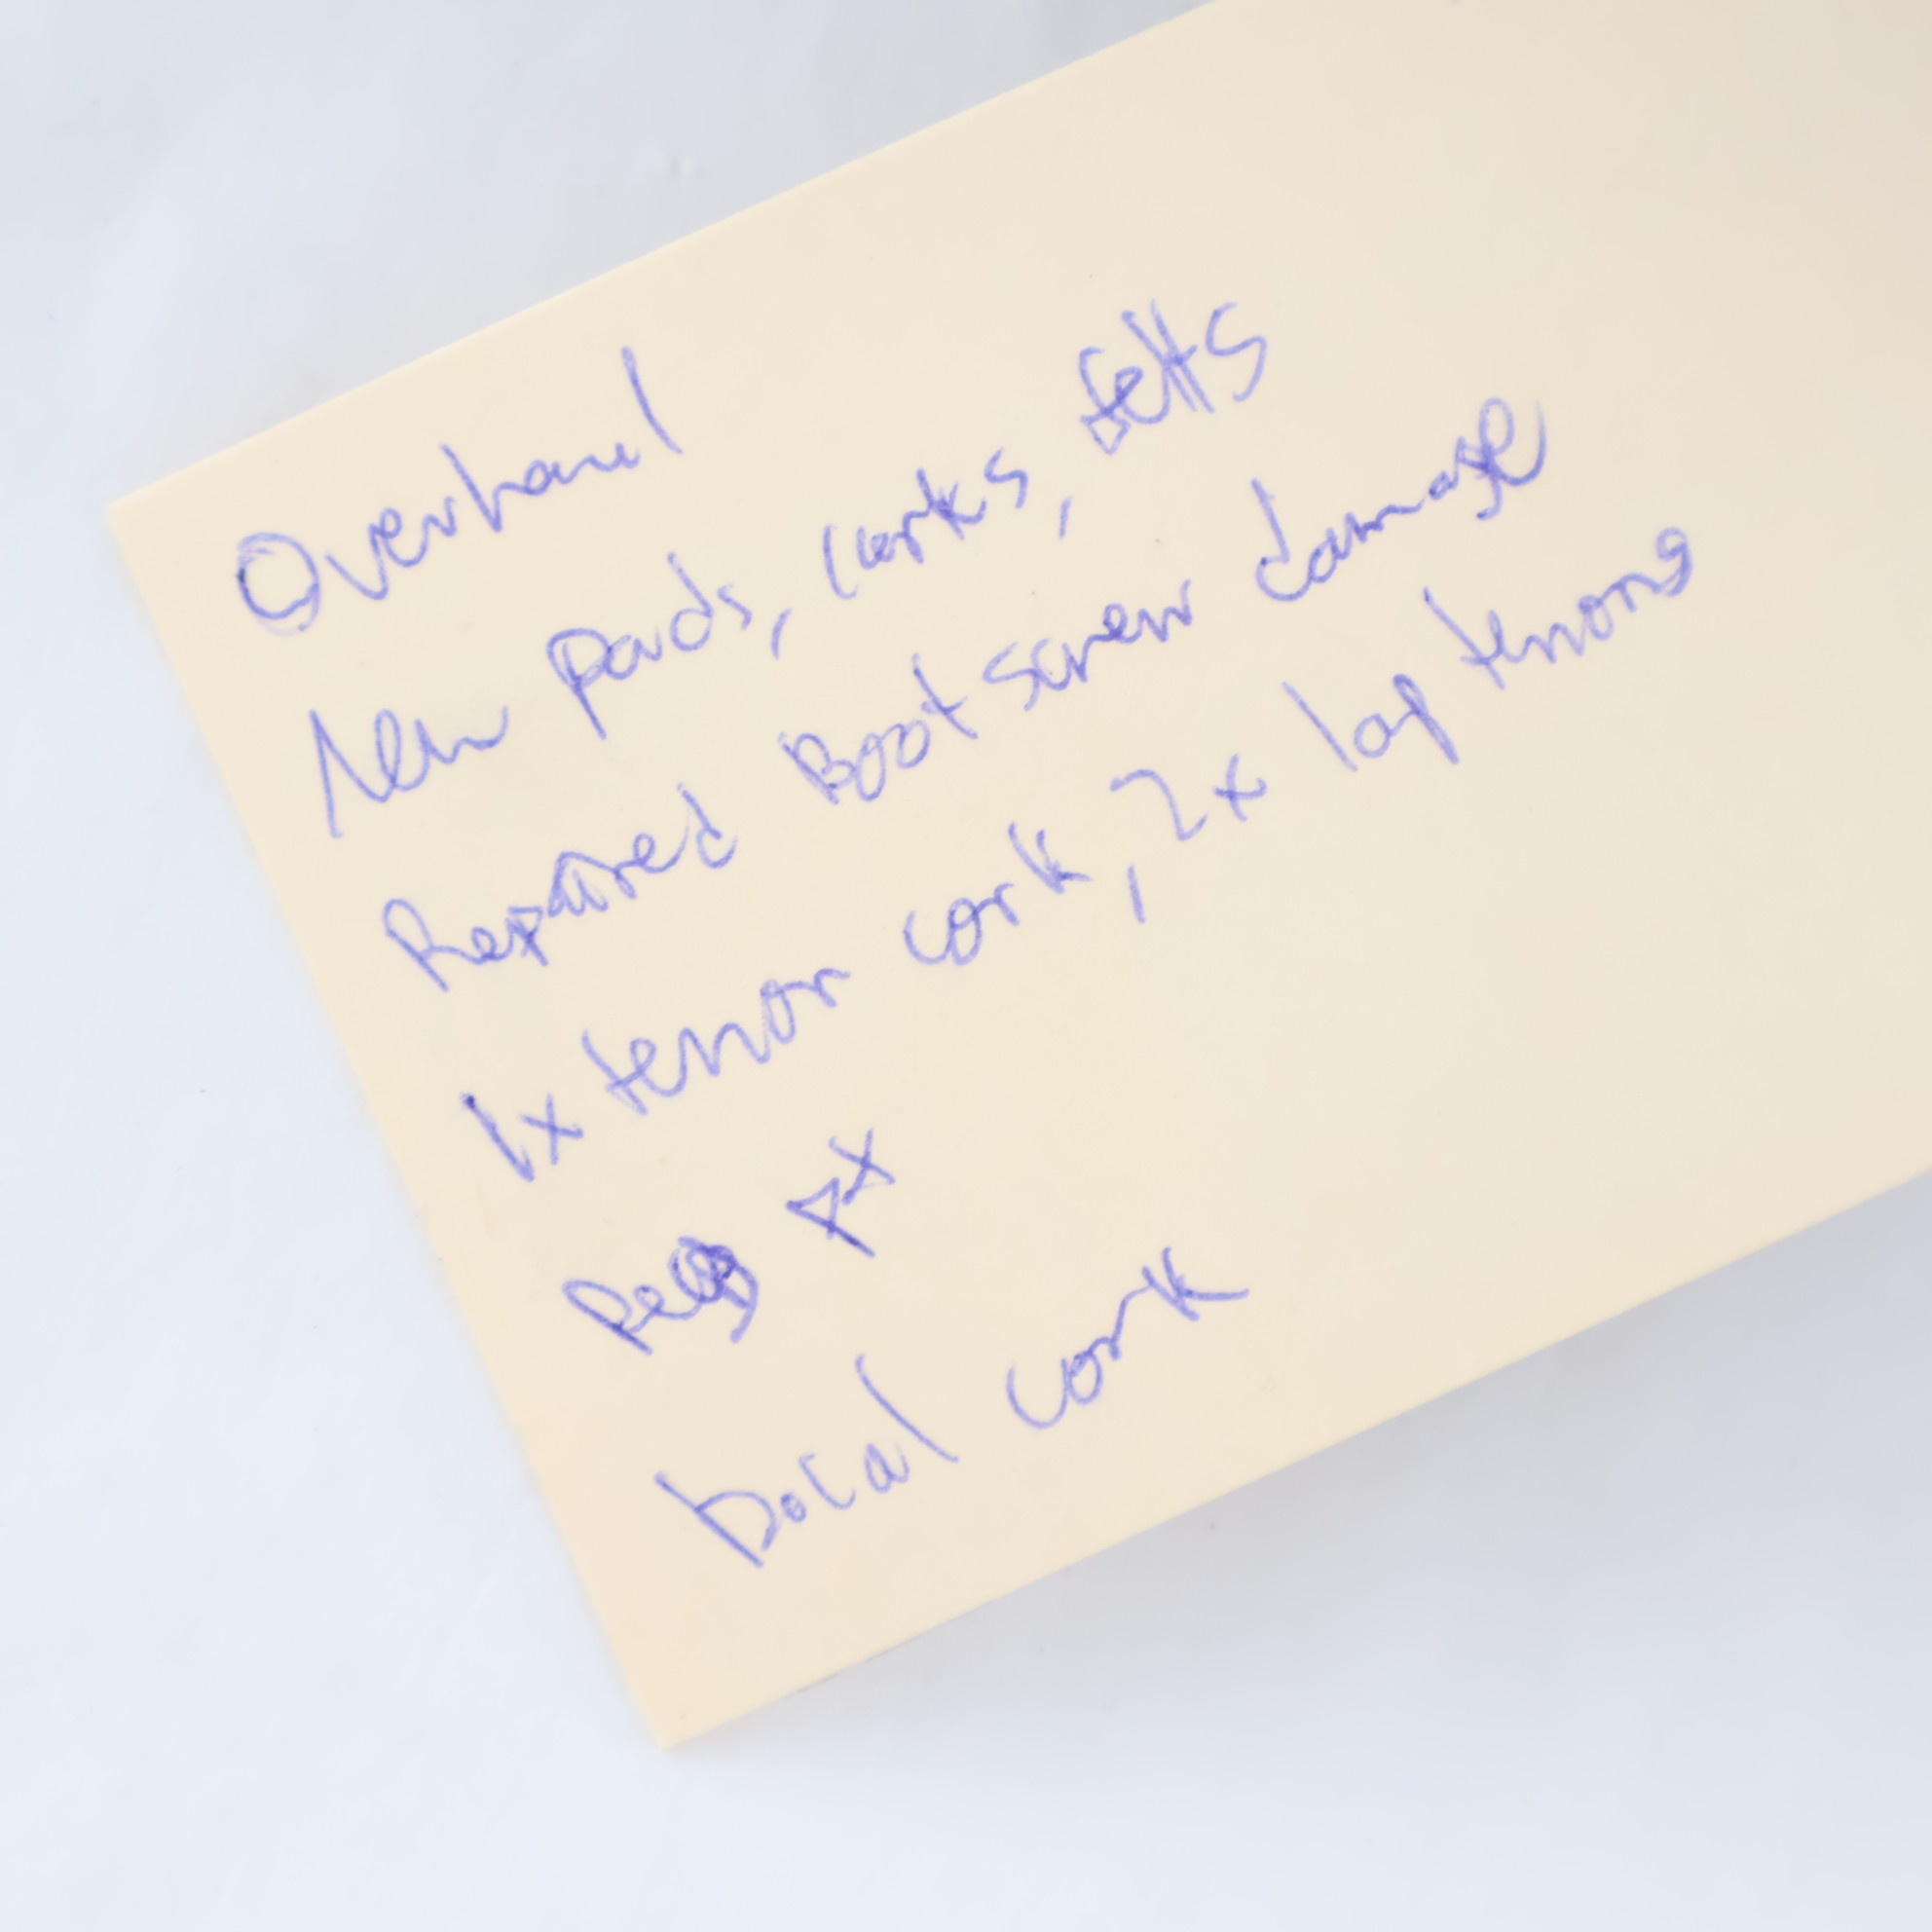 Overhaul
New pads, corks, felts
Repaired Boot screw damage
1x tenon cork, 2x lap tenons
4x
bocal cork